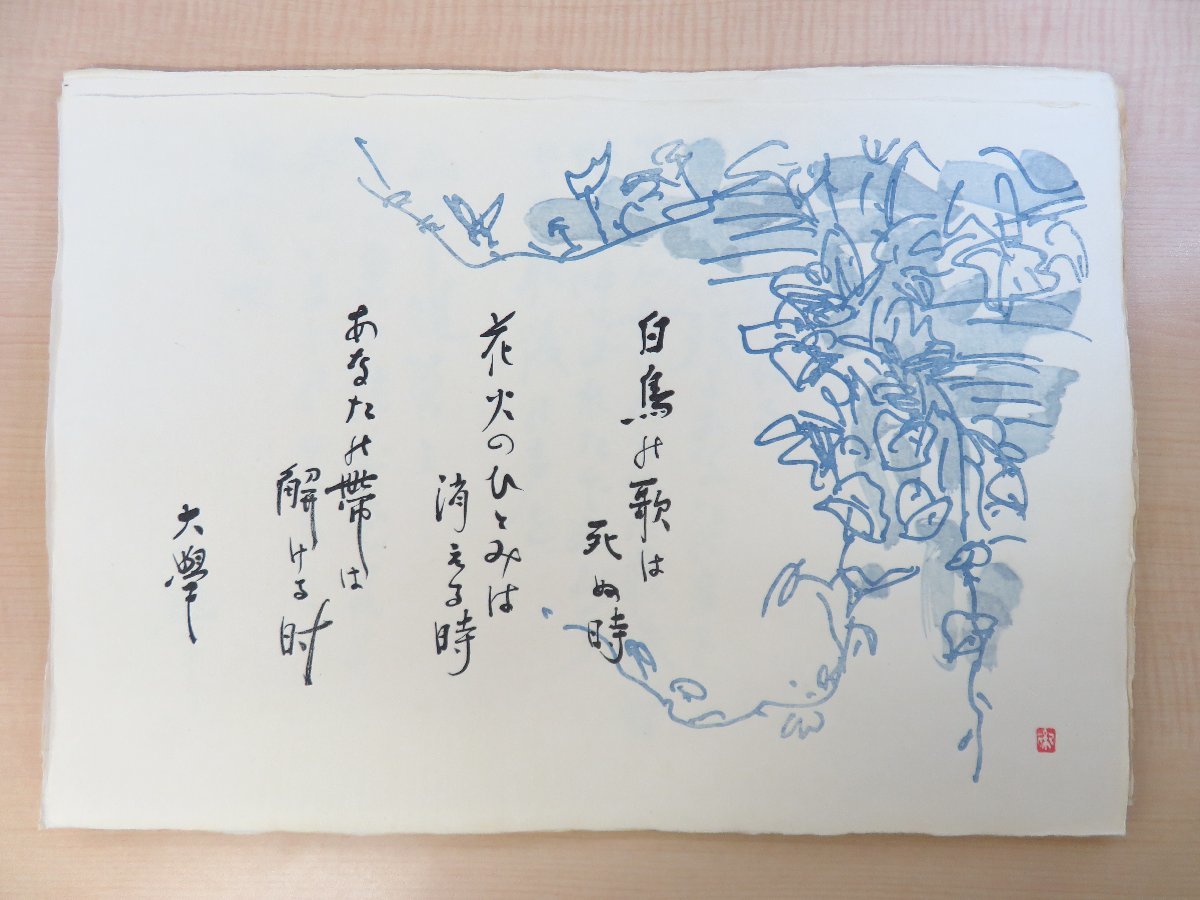 白鳥の歌は
死ぬ時
花火のひとみは
消える時
あなたの帯は
解ける时
大學